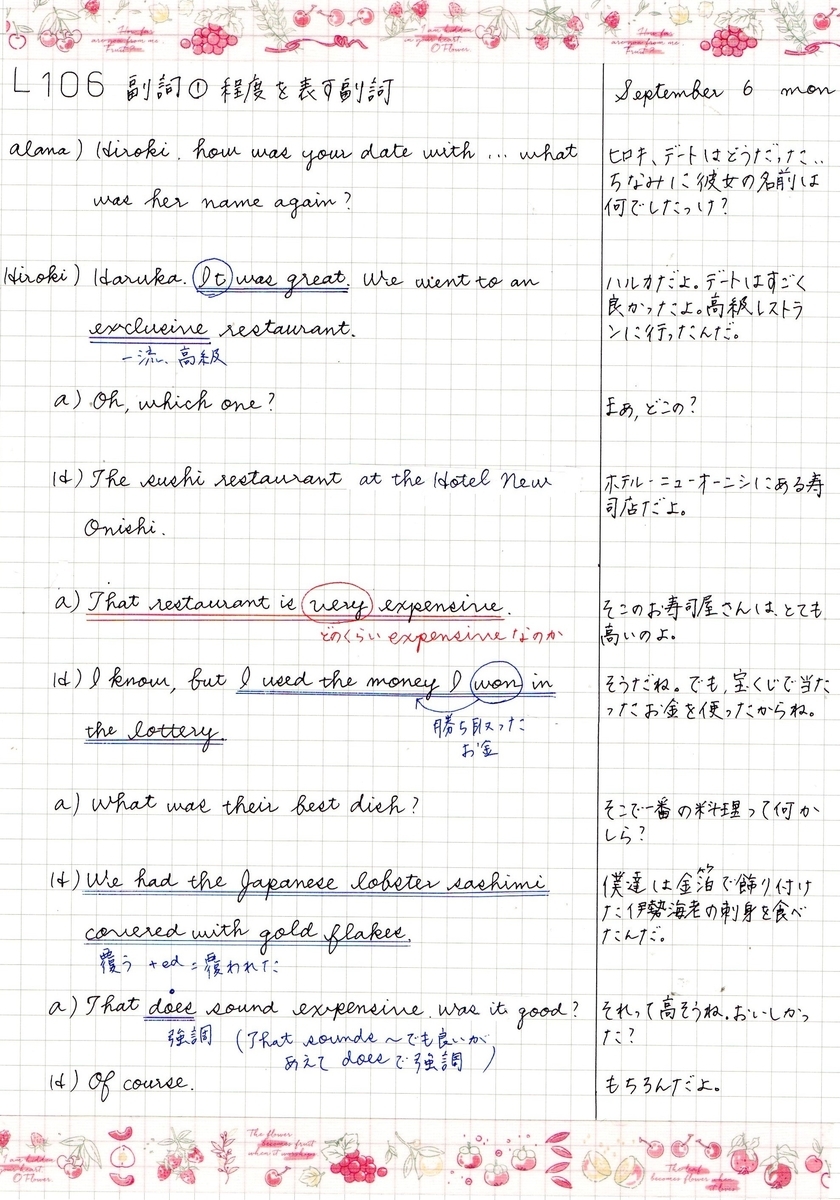 L106 副詞① 程度を表す副詞
September 6 mon
alana) Hiroki, how was your date with ... what
was her name again?
ヒロキ、デートはどうだった..
ちなみに彼女の名前は
何でしたっけ?
Hiroki) Haruka. It was great. We went to an
exclusive restaurant.
一流、高級
ハルカだよ。デートはすごく
良かったよ。高級レストラ
ンに行ったんだ。
a) Oh, which one?
まあ, どこの?
H) The sushi restaurant at the Hotel New
Onishi.
ホテル・ニューオーニシにある寿
司店だよ。
a) That restaurant is very expensive.
どのくらい expensive なのか
そこのお寿司屋さんは、とても
高いのよ。
H) I know, but I used the money I won in
the lottery.
勝ち取った
お金
そうだね。でも, 宝くじで当た
ったお金を使ったからね。
a) What was their best dish?
そこで一番の料理って何か
しら?
H) We had the Japanese lobster sashimi
covered with gold flakes.
覆う +ed = 覆われた
僕達は金箔で飾り付け
た伊勢海老の刺身を食べ
たんだ。
a) That does sound expensive. Was it good?
強調 (That sounds ~でも良いが
あえて does で強調)
それって高そうね。おいしかっ
た?
H) Of course.
もちろんだよ。
The flower
becomes fruit